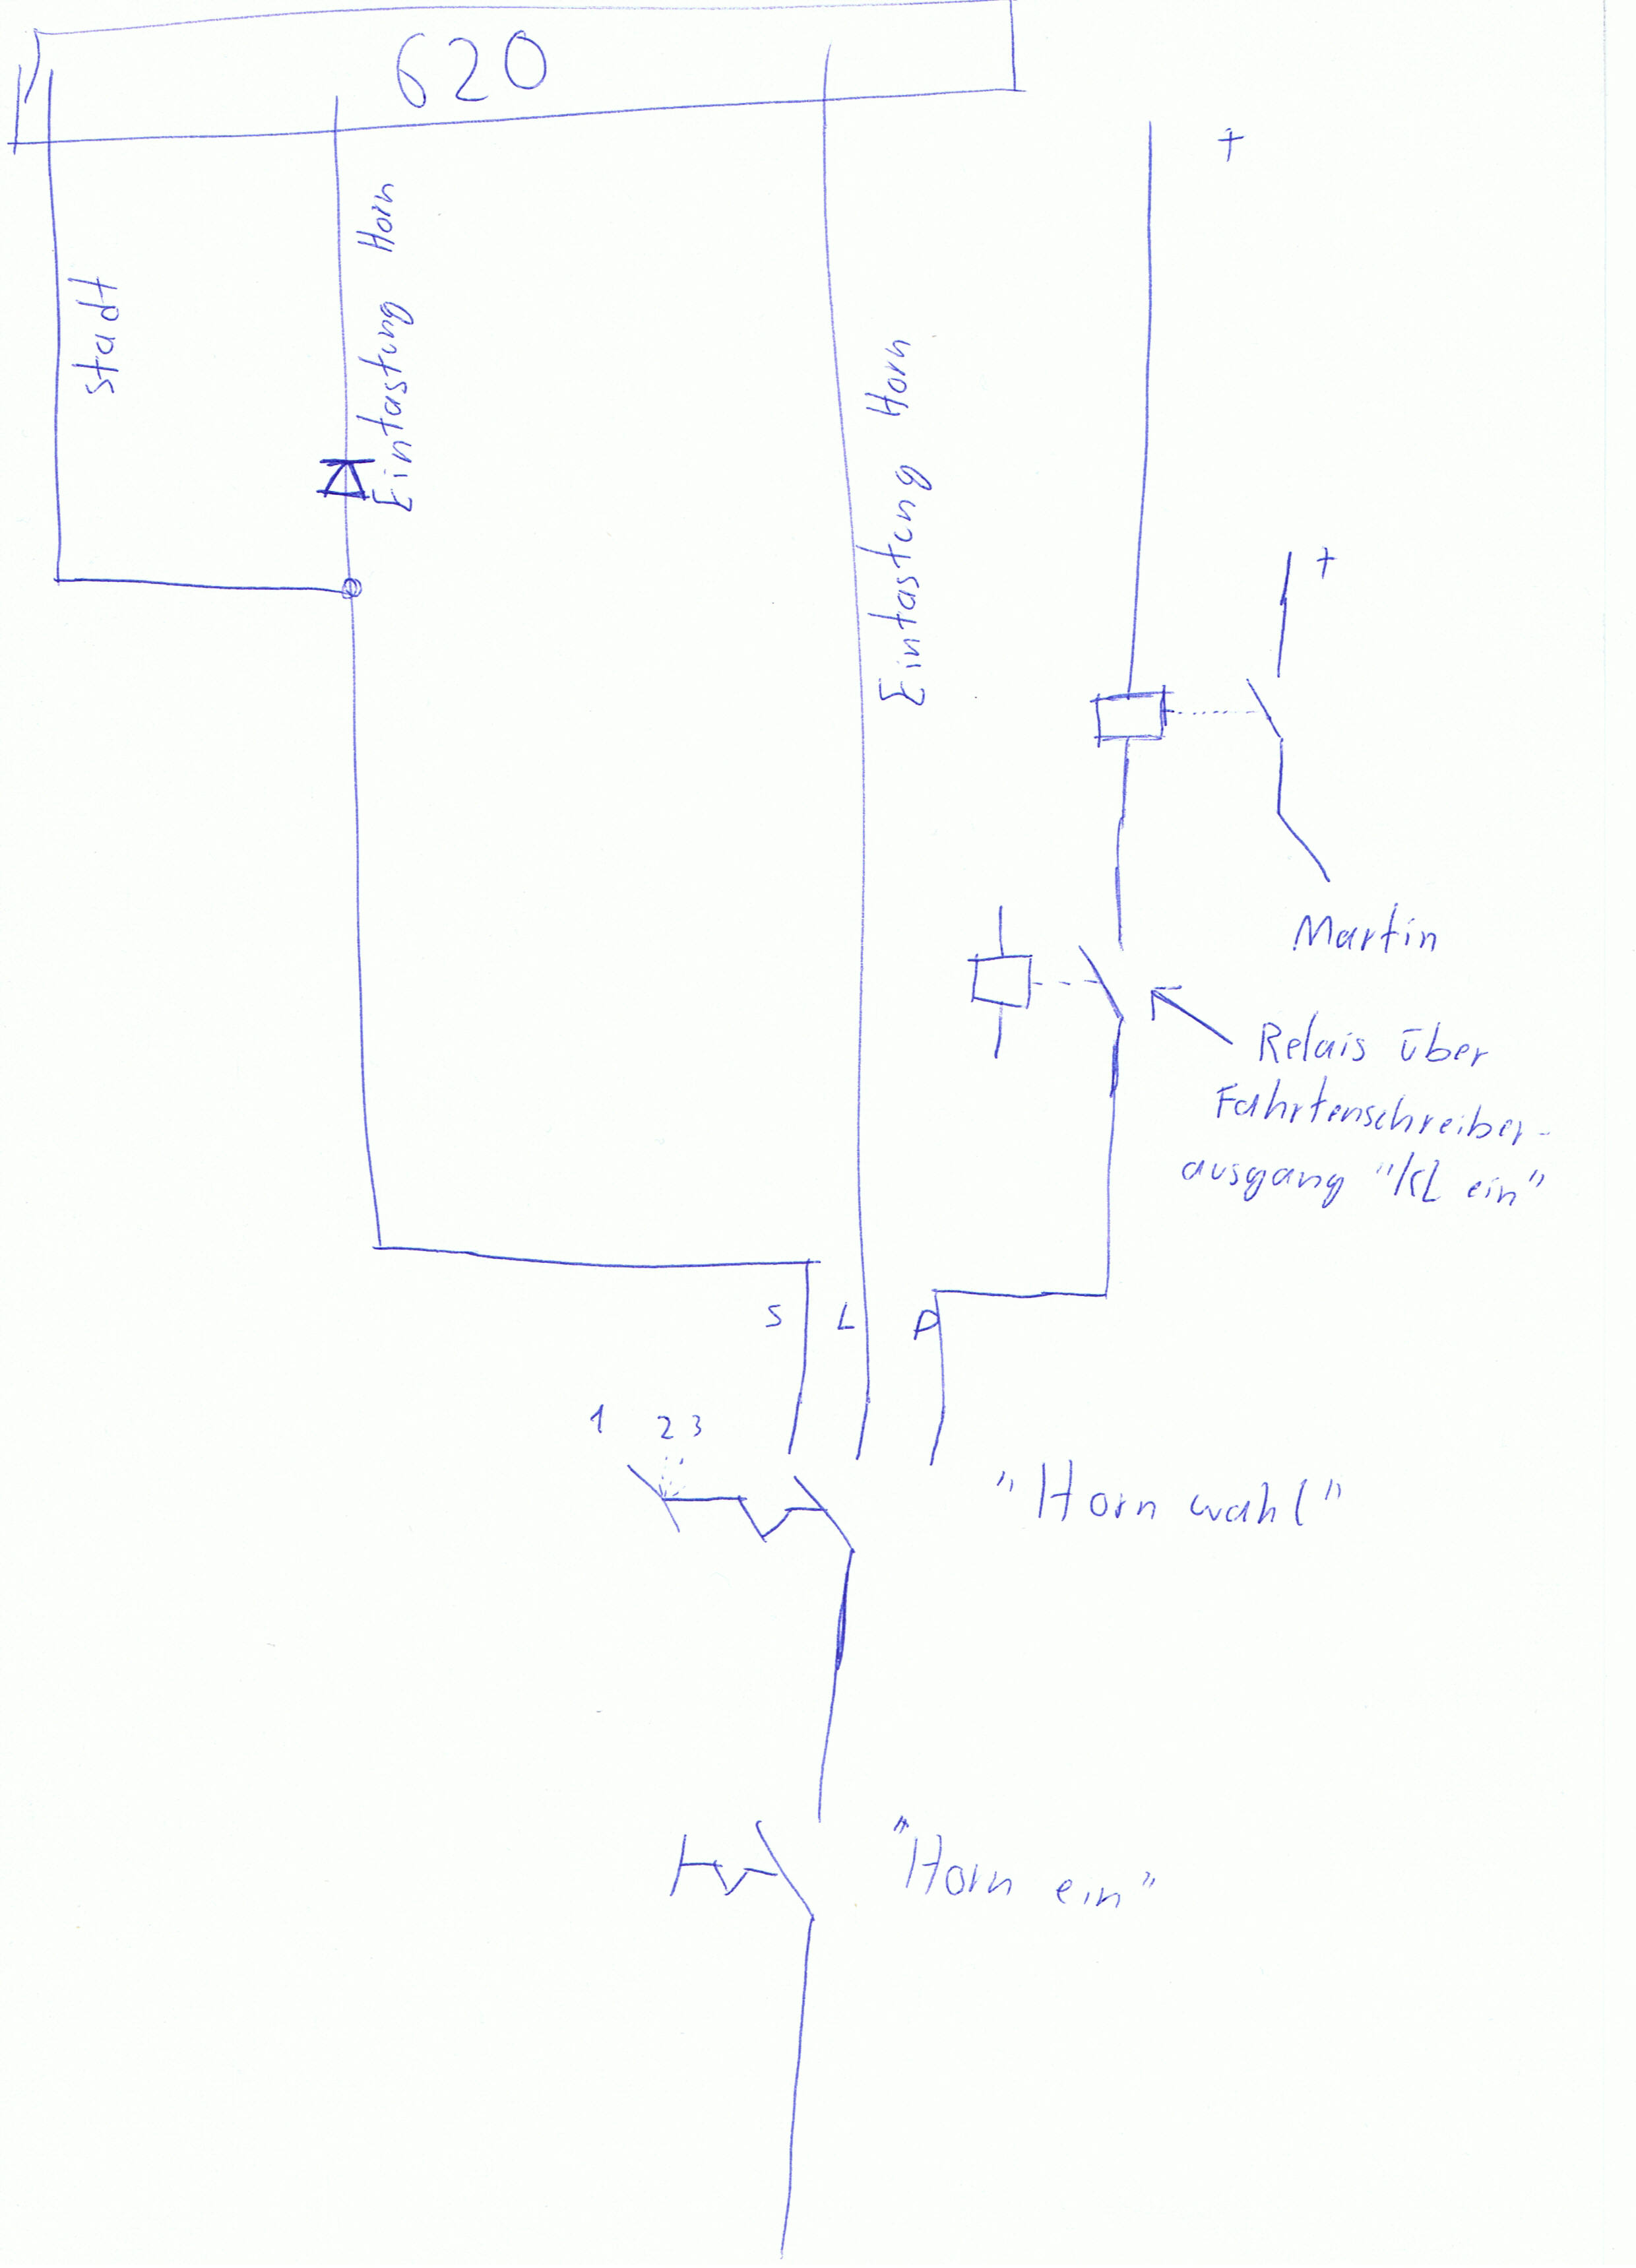 620
+
stadt
Eintastung Horn
Eintastung Horn
+
Martin
Relais über
Fahrtenschreiber-
ausgang "KL ein"
S L P
1 2 3
"Horn wahl"
"Horn ein"